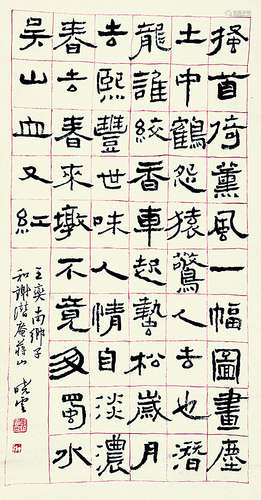 搔首倚薰風一幅圖畫塵
土中鶴怨猿驚人去也潛
龍誰絞香車起蟄松歲月
去熙豐世味人情自淡濃
春去春來墩不竟多蜀水
吳山血又紅
王奕南鄉子
和謝潛庵蔣山
曉雲